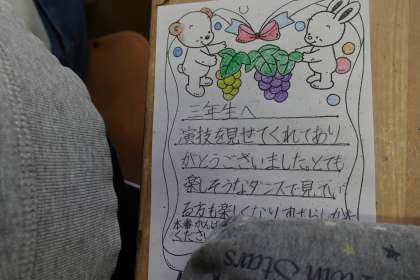 三年生へ
演技を見せてくれてあり
がとうございました。とても
楽しそうなダンスで見てい
る方も楽しくなり
本番がんば
ください
Stars